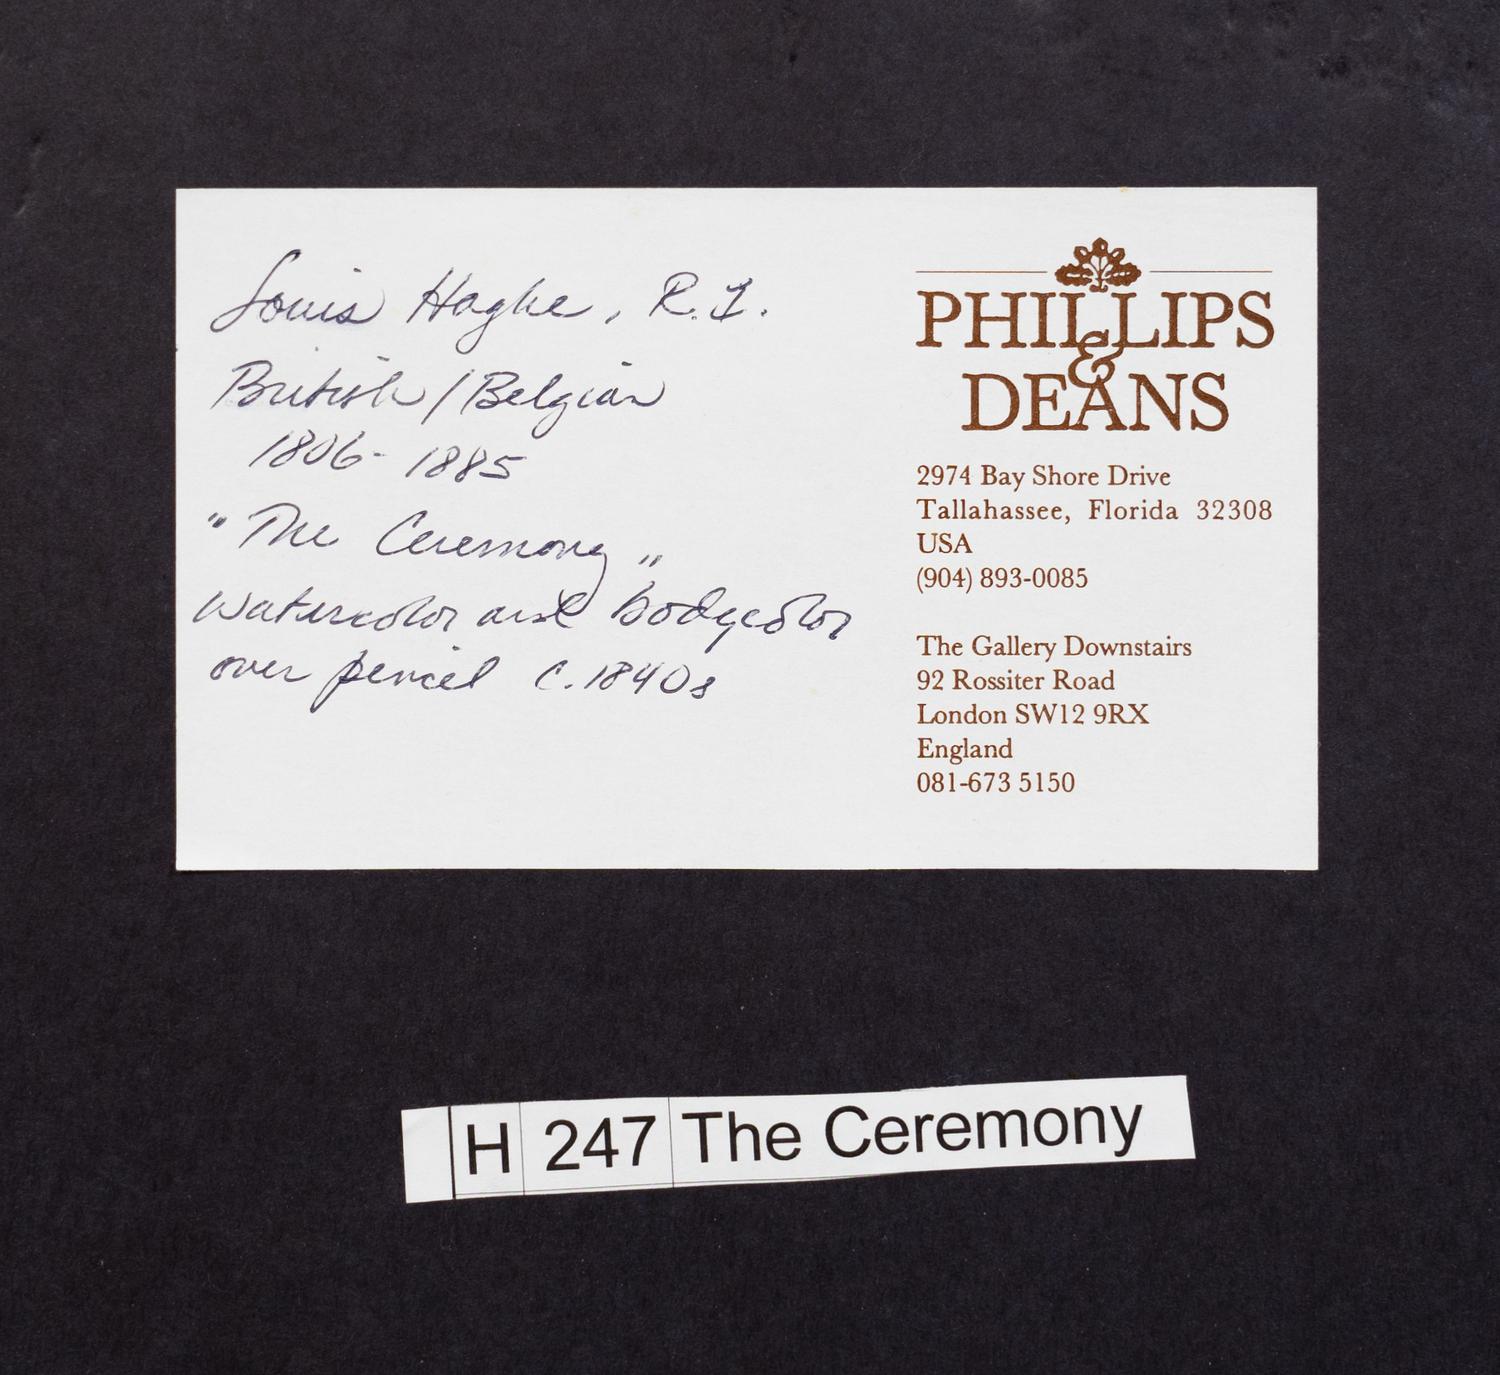 Louis Haghe, R.I.
British/Belgian
1806-1885
"The Ceremony"
watercolor and bodycolor
over pencil c.1840s
PHILLIPS
&
DEANS
2974 Bay Shore Drive
Tallahassee, Florida 32308
USA
(904) 893-0085
The Gallery Downstairs
92 Rossiter Road
London SW12 9RX
England
081-673 5150
H 247 The Ceremony